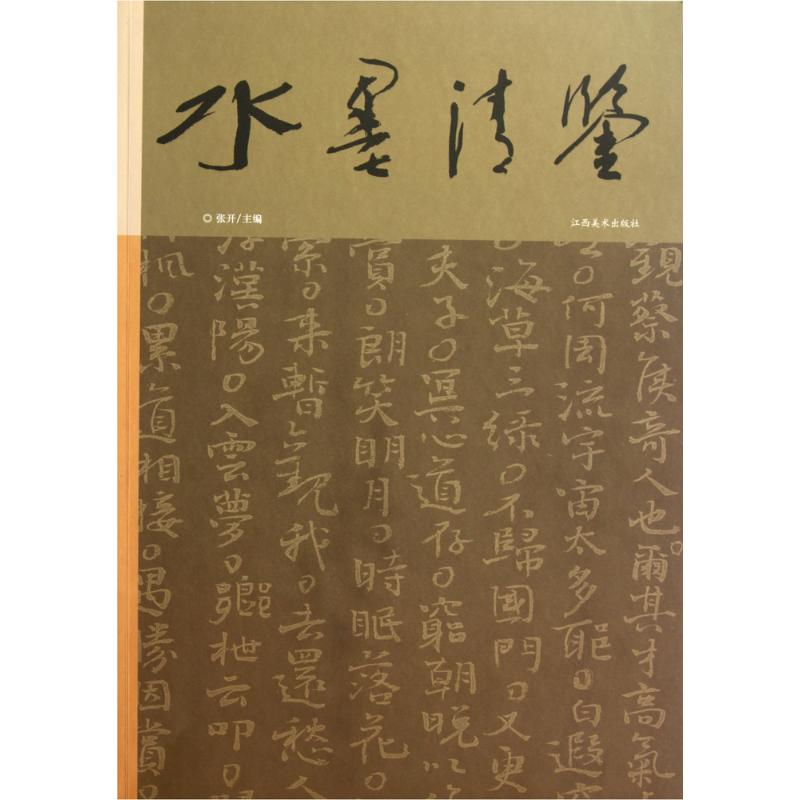 水墨清鉴
◎ 张开/主编
江西美术出版社
觀蔡侯奇人也。爾其才高氣
。何周流宇宙太多耶。白遐
。海草三綠。不歸國門。又更
夫子。冥心道存。窮朝晚以
賞。朗笑明月。時眠落花。
索。来暫觀我。去還愁人
浮漢陽。入雲夢。鄉枻云叩。
楓。累道相接。遇勝因賞。